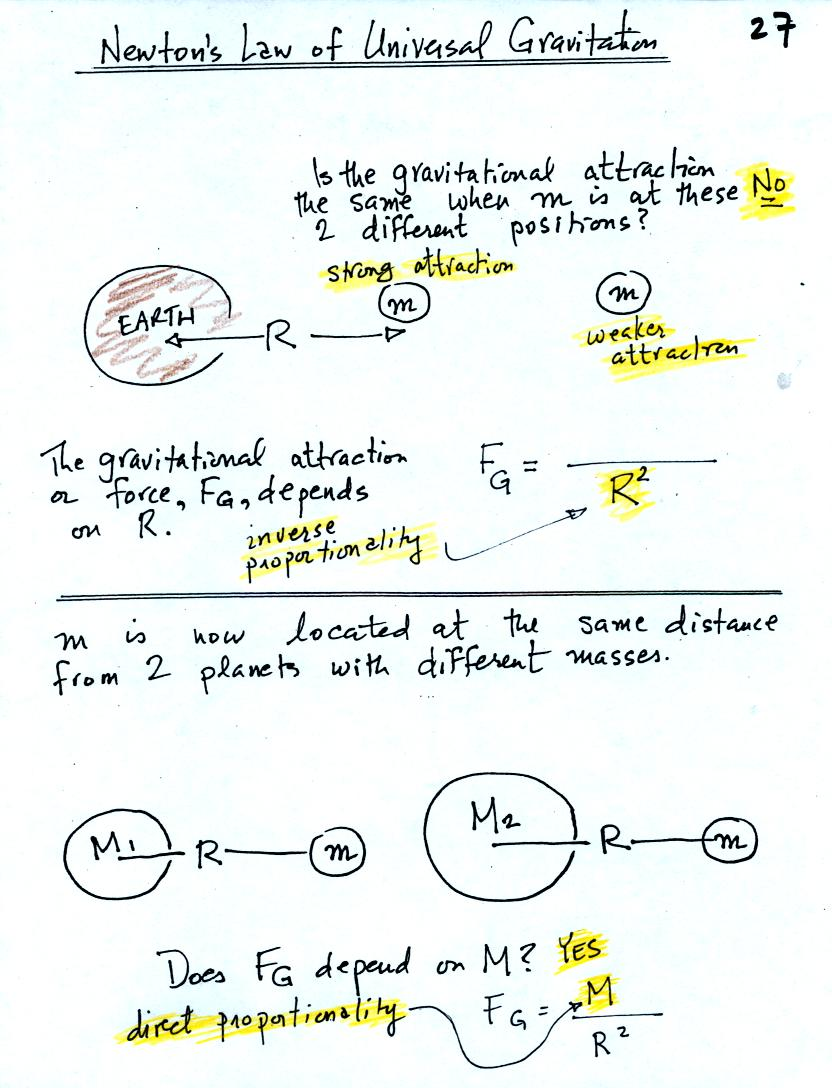 27
Newton's Law of Universal Gravitation
Is the gravitational attraction
the same when m is at these No
2 different positions?
strong attraction
m
m
EARTH
R
weaker
attraction
The gravitational attraction
or force, FG, depends
on R.
FG =
R²
inverse
proportionality
m is now located at the same distance
from 2 planets with different masses.
M1 R m
M2 R m
Does FG depend on M? YES
direct proportionality
FG = M
R²